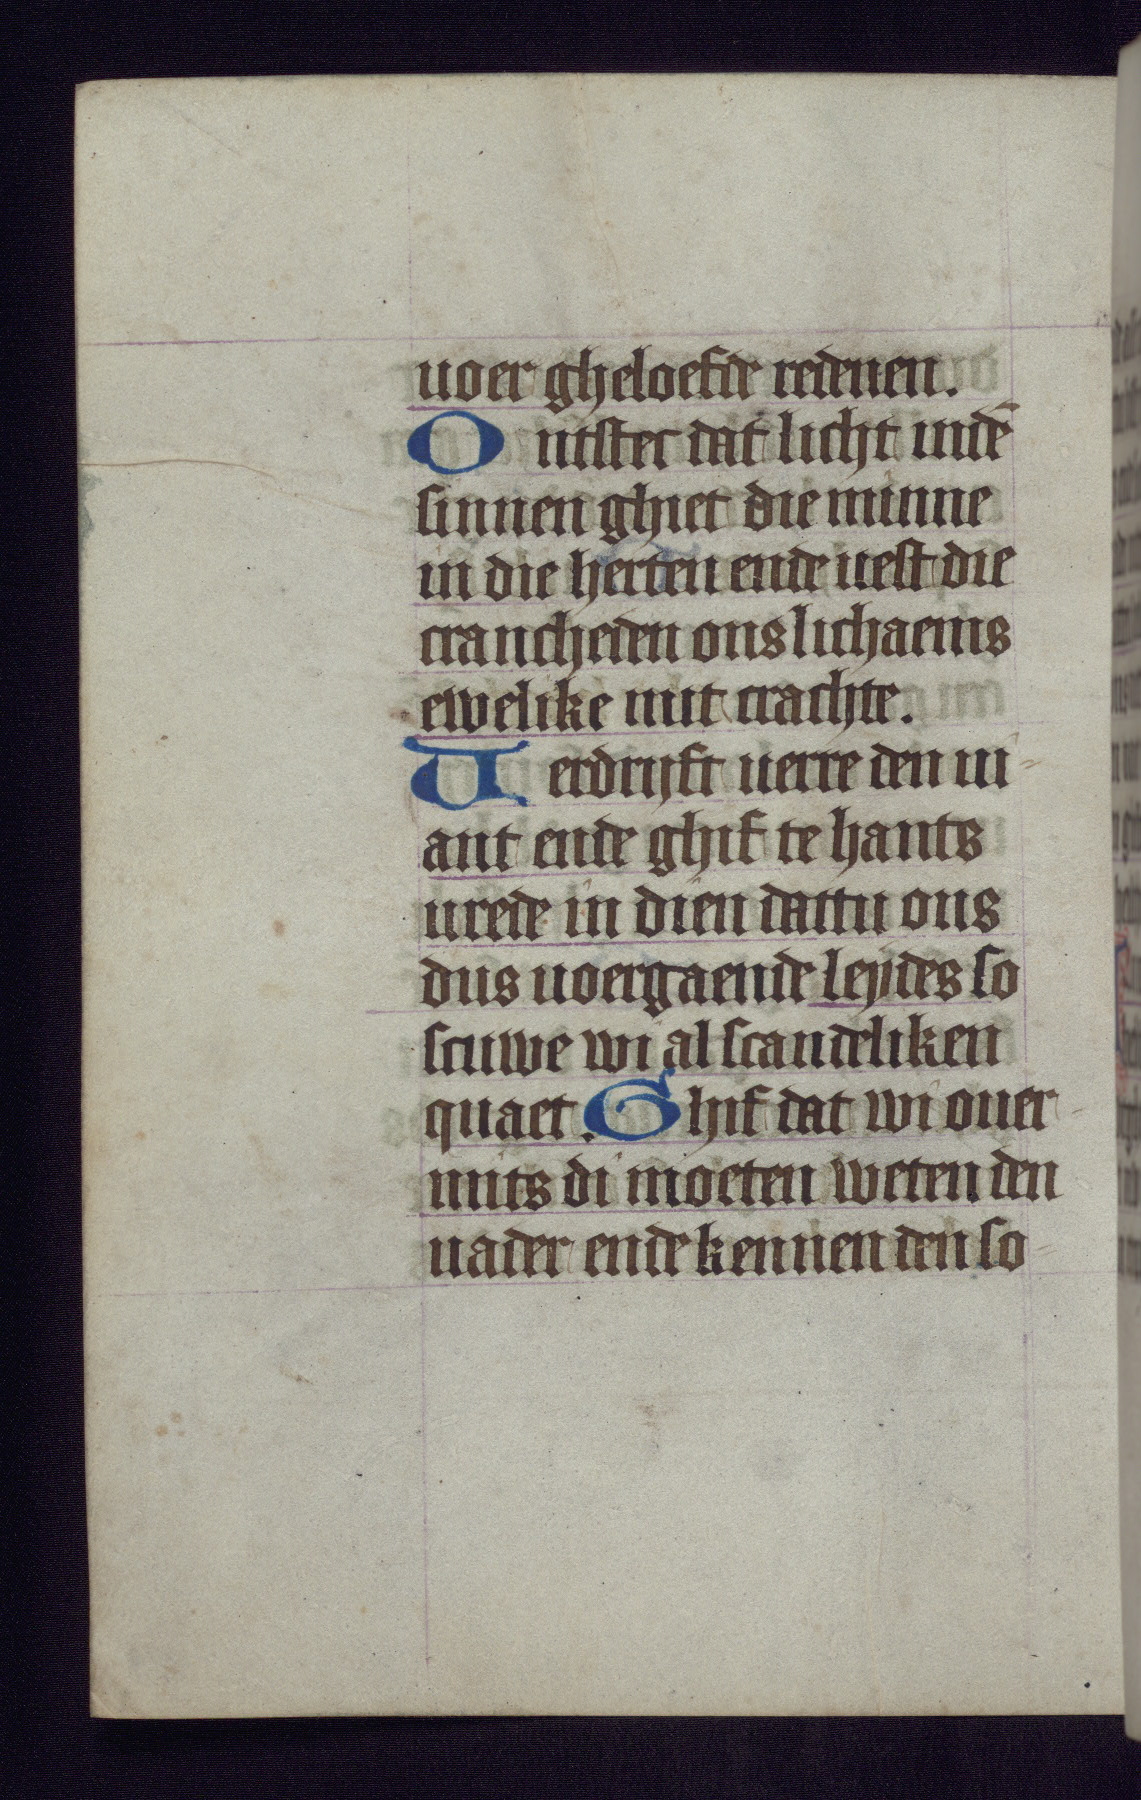 uoer gheloefde redenen.
Ontstec dat licht indē
sinnen ghiet die minne
in die herten ende uest die
crancheden ons lichaems
ewelike mit crachte.
Uerdrijft uerre den ui-
ant ende ghif te hants
urede in dien dattu ons
dus uoergaende leydes so
scuwe wi al scandeliken
quaet. Ghif dat wi ouer-
mits di moeten weten den
uader ende kennen den so-